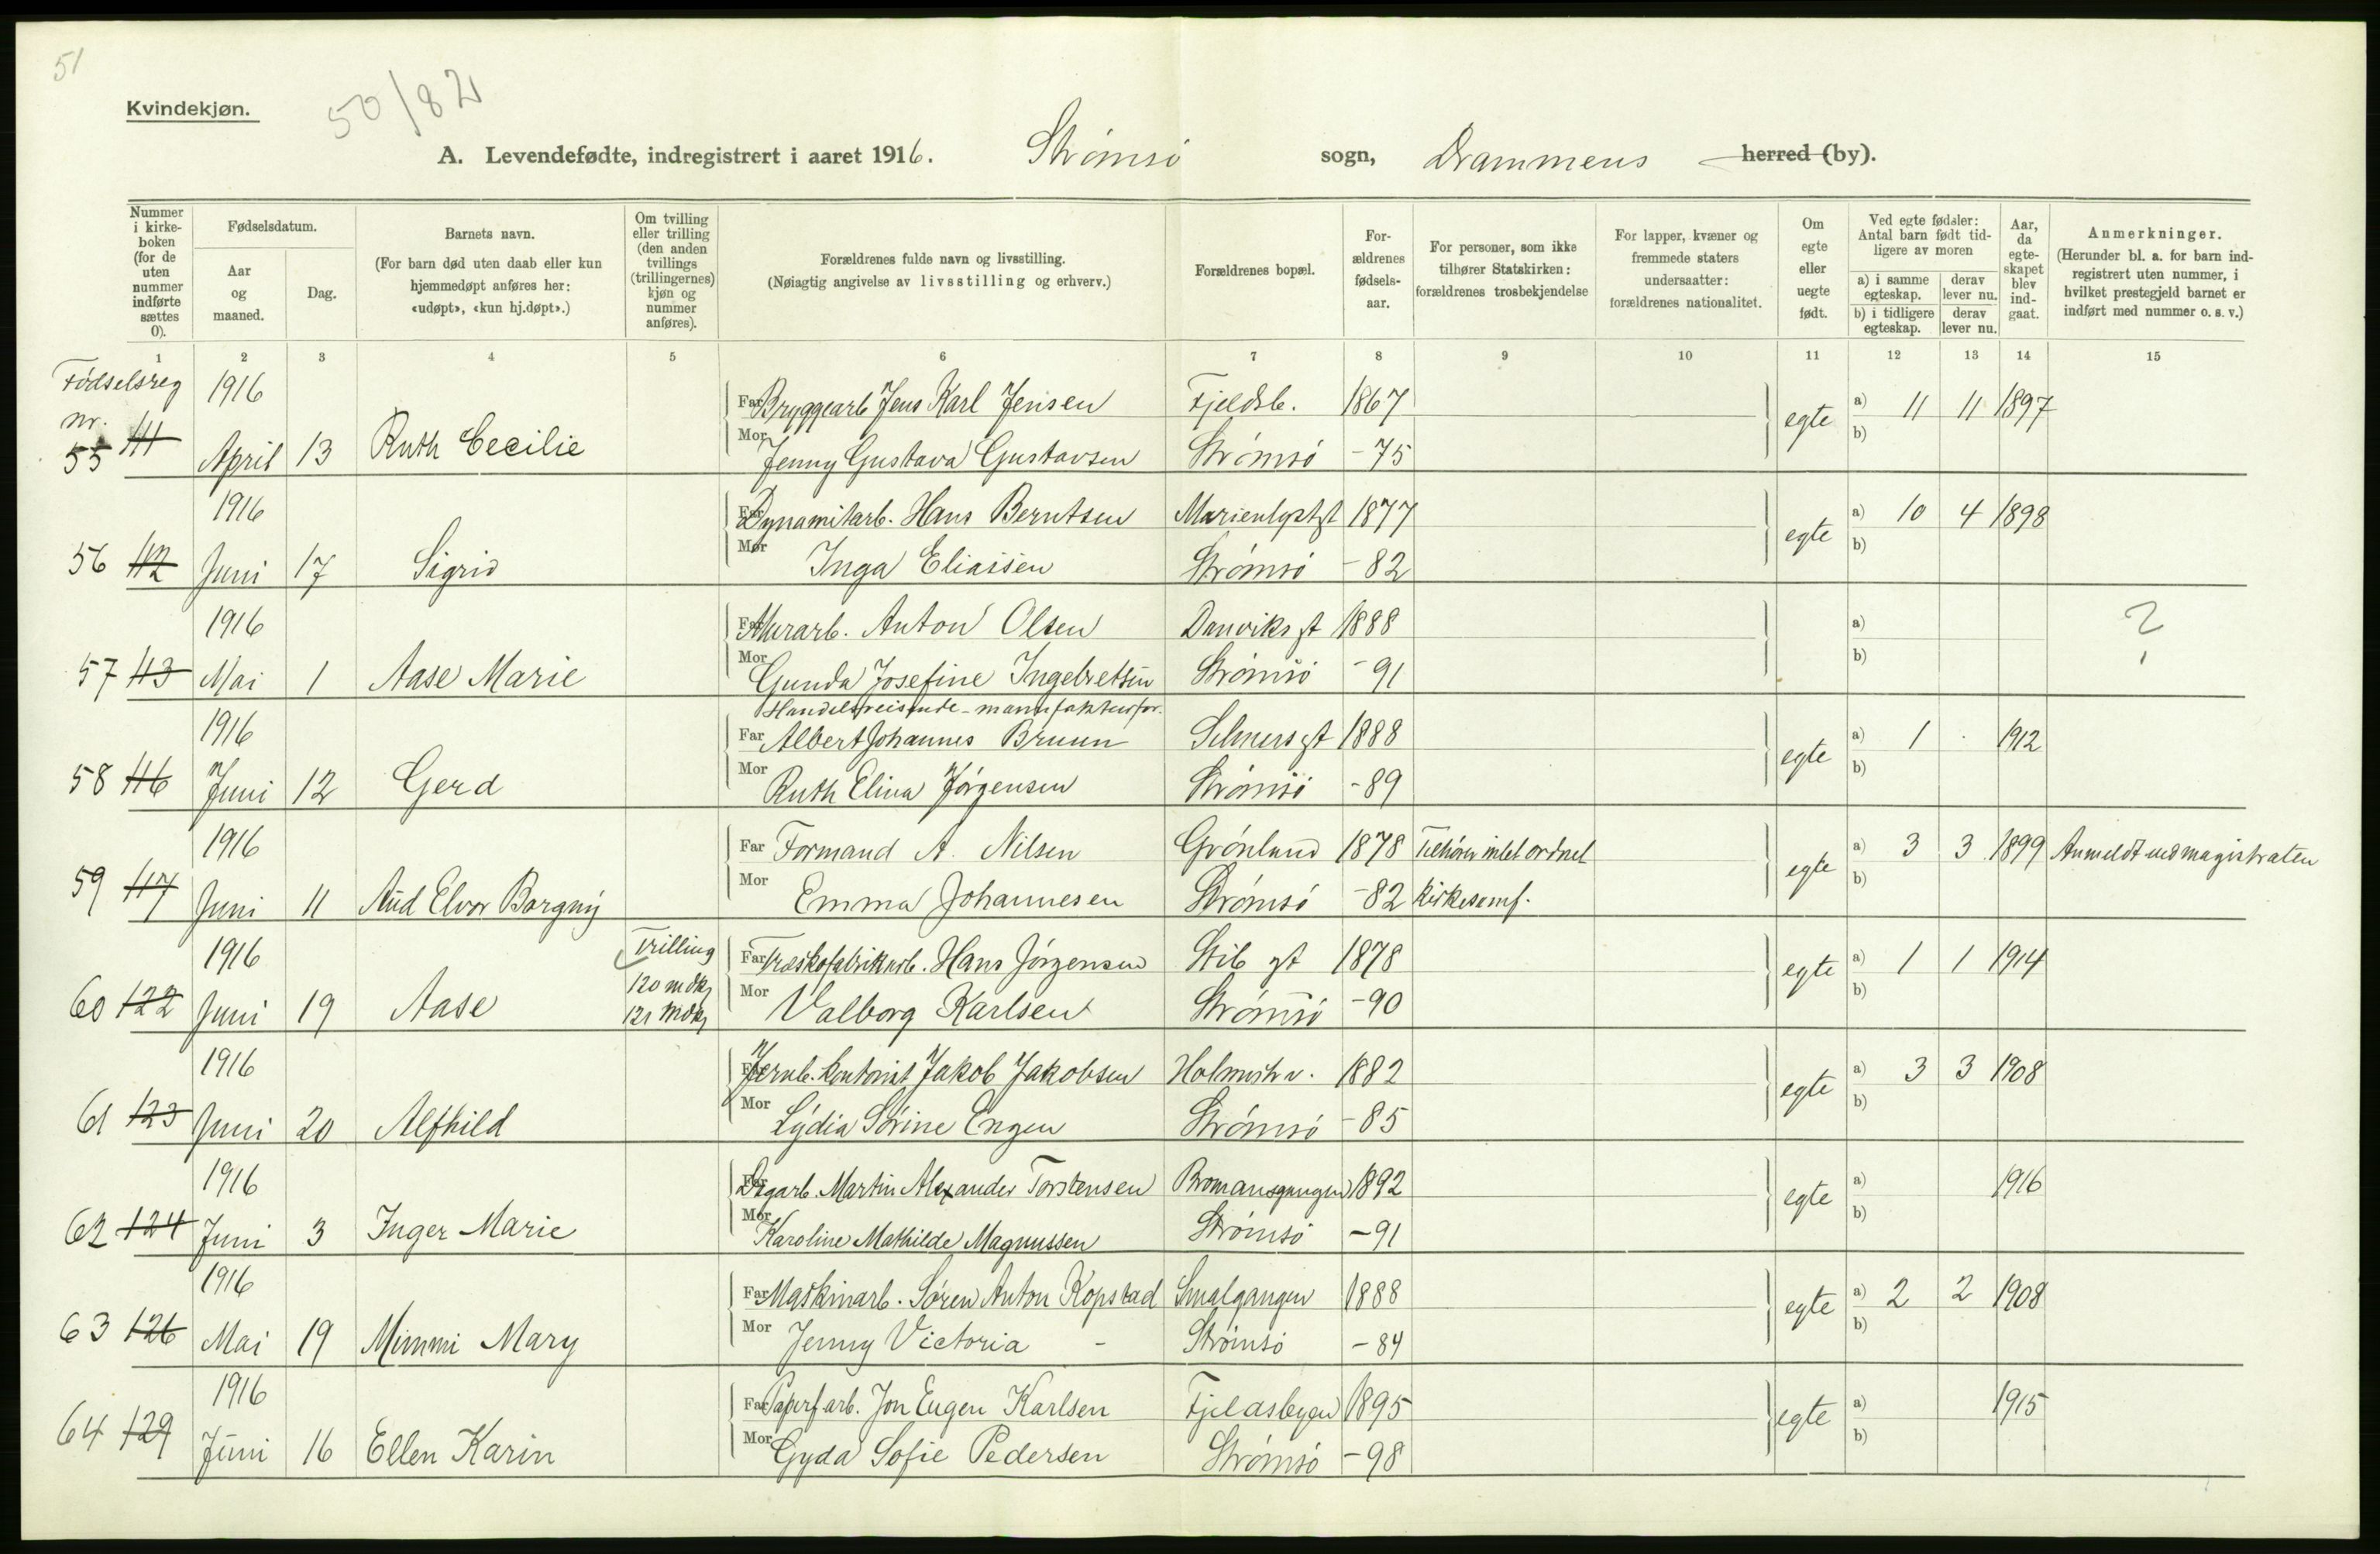 51
Kvindekjøn.
50/82
A. Levendefødte, indregistrert i aaret 1916. Strømsø sogn, Drammens herred (by).
Nummer i kirke-boken (for de uten nummer indførte sættes 0).
Fødselsdatum.
Aar og maaned.
Dag.
Barnets navn.
(For barn død uten daab eller kun hjemmedøpt anføres her: «udøpt», «kun hj.døpt».)
Om tvilling eller trilling (den anden tvillings (trillingernes) kjøn og nummer anføres).
Forældrenes fulde navn og livsstilling.
(Nøiagtig angivelse av livsstilling og erhverv.)
Forældrenes bopæl.
For-ældrenes fødsels-aar.
For personer, som ikke tilhører Statskirken: forældrenes trosbekjendelse
For lapper, kvæner og fremmede staters undersaatter: forældrenes nationalitet.
Om egte eller uegte født.
Ved egte fødsler: Antal barn født tid-ligere av moren
a) i samme egteskap.
derav lever nu.
b) i tidligere egteskap.
derav lever nu.
Aar, da egte-skapet blev ind-gaat.
Anmerkninger.
(Herunder bl. a. for barn ind-registrert uten nummer, i hvilket prestegjeld barnet er indført med nummer o. s. v.)
1 2 3 4 5 6 7 8 9 10 11 12 13 14 15
Fødselsreg nr.
1916 Far Bryggearb Jens Karl Jensen Fjeldsb. 1867 egte a) 11 11 1897
55 111 April 13 Ruth Cecilie Mor Jenny Gustava Gustavsen Strømsø -75 b)
1916 Far Dynamitarb. Hans Berntsen Marienlystgt 1877 egte a) 10 4 1898
56 112 Juni 17 Sigrid Mor Inga Eliassen Strømsø -82 b)
1916 Far Murarb. Anton Olsen Danviks gt 1888 a) ?
57 113 Mai 1 Aase Marie Mor Gunda Josefine Ingebretsen Strømsø -91 b)
Handelsreisende - manufakturfor.
1916 Far Albert Johannes Bruun Selmersgt 1888 egte a) 1 . 1912
58 116 Juni 12 Gerd Mor Ruth Elina Jørgensen Strømsø -89 b)
1916 Far Formand A. Nilsen Grønland 1878 Tilhører intet ordnet egte a) 3 3 1899 Anmeldt ved magistraten
59 117 Juni 11 Aud Elvor Borgny Mor Emma Johannesen Strømsø -82 kirkesamf. b)
1916 Trilling Far Træskofabrikarb. Hans Jørgensen Stib gt 1878 egte a) 1 1 1914
60 122 Juni 19 Aase 120 mdkj 121 mdkj Mor Valborg Karlsen Strømsø -90 b)
1916 Far Jernb. kontorist Jakob Jakobsen 1882 egte a) 3 3 1908
61 123 Juni 20 Alfhild Mor Lydia Sørine Engen Strømsø -85 b)
1916 Far Martin Alexander Torstensen Bromansgangen 1892 egte a) 1916
62 124 Juni 3 Inger Marie Mor Karoline Mathilde Magnussen Strømsø -91 b)
1916 Far Maskinarb. Søren Anton Kopstad Smalgangen 1888 egte a) 2 2 1908
63 126 Mai 19 Mimmi Mary Mor Jenny Victoria - Strømsø -84 b)
1916 Far Papirfarb. Jon Eugen Karlsen Fjeldsbyen 1895 egte a) 1915
64 129 Juni 16 Ellen Karin Mor Gyda Sofie Pedersen Strømsø -98 b)